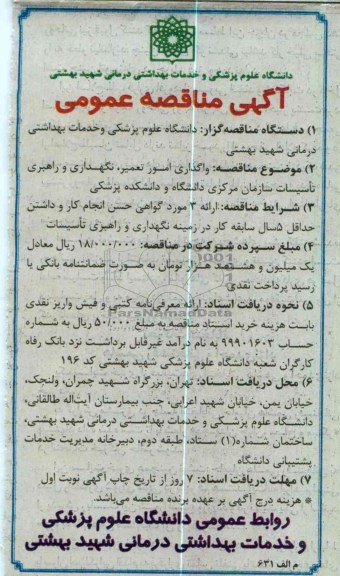 دانشگاه علوم پزشکی و خدمات بهداشتی درمانی شهید بهشتی
آگهی مناقصه عمومی
۱) دستگاه مناقصه‌گزار: دانشگاه علوم پزشکی وخدمات بهداشتی
درمانی شهید بهشتی
۲) موضوع مناقصه: واگذاری امور تعمیر، نگهداری و راهبری
تأسیسات سازمان مرکزی دانشگاه و دانشکده پزشکی
۳) شرایط مناقصه: ارائه ۳ مورد گواهی حسن انجام کار و داشتن
حداقل ۵سال سابقه کار در زمینه نگهداری و راهبری تأسیسات
۴) مبلغ سپرده شرکت در مناقصه: ۱۸/۰۰۰/۰۰۰ ریال معادل
یک میلیون و هشتصد هزار تومان به صورت ضمانتنامه بانکی یا
رسید پرداخت نقدی
۵) نحوه دریافت اسناد: ارائه معرفی‌نامه کتبی و فیش واریز نقدی
بابت هزینه خرید اسناد مناقصه به مبلغ ۵۰/۰۰۰ ریال به شماره
حساب ۹۹۹۰۱۶۰۳ به نام درآمد غیرقابل برداشت نزد بانک رفاه
کارگران شعبه دانشگاه علوم پزشکی شهید بهشتی کد ۱۹۶
۶) محل دریافت اسناد: تهران، بزرگراه شهید چمران، ولنجک،
خیابان یمن، خیابان شهید اعرابی، جنب بیمارستان آیت‌اله طالقانی،
دانشگاه علوم پزشکی و خدمات بهداشتی درمانی شهید بهشتی،
ساختمان شماره(۱) ستاد، طبقه دوم، دبیرخانه مدیریت خدمات
پشتیبانی دانشگاه
۷) مهلت دریافت اسناد: ۷ روز از تاریخ چاپ آگهی نوبت اول
* هزینه درج آگهی بر عهده برنده مناقصه می‌باشد.
روابط عمومی دانشگاه علوم پزشکی
و خدمات بهداشتی درمانی شهید بهشتی
م الف ۶۳۱